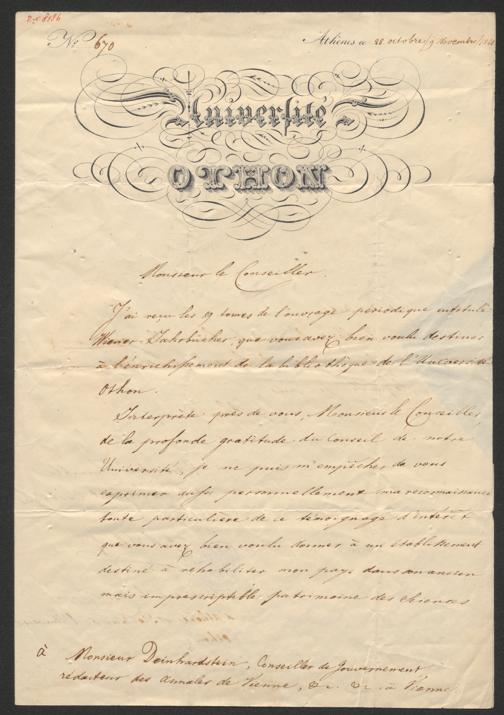 Nº 670
Athènes le 28 octobre/9 Novembre
Université
OTHON
Monsieur le Conseiller.
J'ai reçu les 9 tomes de l'ouvrage périodique intitulé
Wiener-Jahrbücher, que vous avez bien voulu destiner
à l'enrichissement de la bibliothèque de l'Université
Othon.
Interprète près de vous, Monsieur le Conseiller,
de la profonde gratitude du Conseil de notre
Université, je ne puis m'empêcher de vous
exprimer aussi personnellement ma reconnaissance
toute particulière de ce témoignage d'intérêt
que vous avez bien voulu donner à un établissement
destiné à rehabiliter mon pays dans son ancien
mais imprescriptible patrimoine des sciences
à Monsieur Deinhardstein, Conseiller de Gouvernement
rédacteur des annales de Vienne, &c. &c. à Vienne